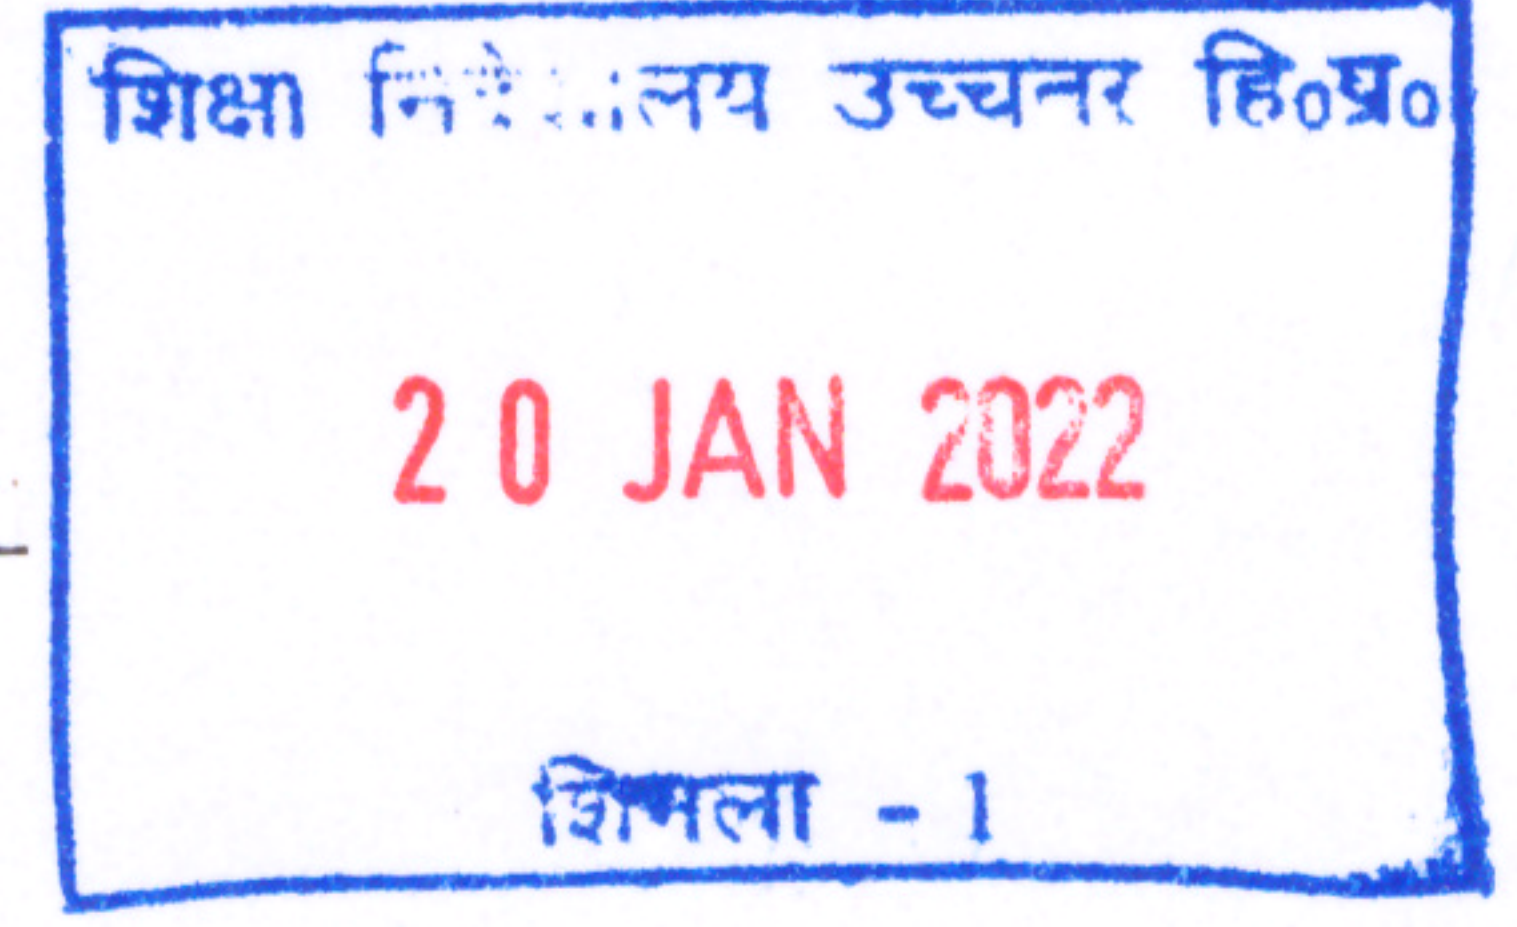 शिक्षा उच्चतर हि०प्र०
20 JAN 2022
शिमला - 1